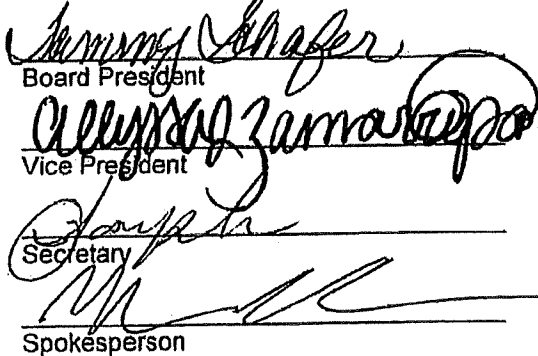 Tammy Schafer
Board President
Allyssa Zamarripa
Vice President
Secretary
Spokesperson